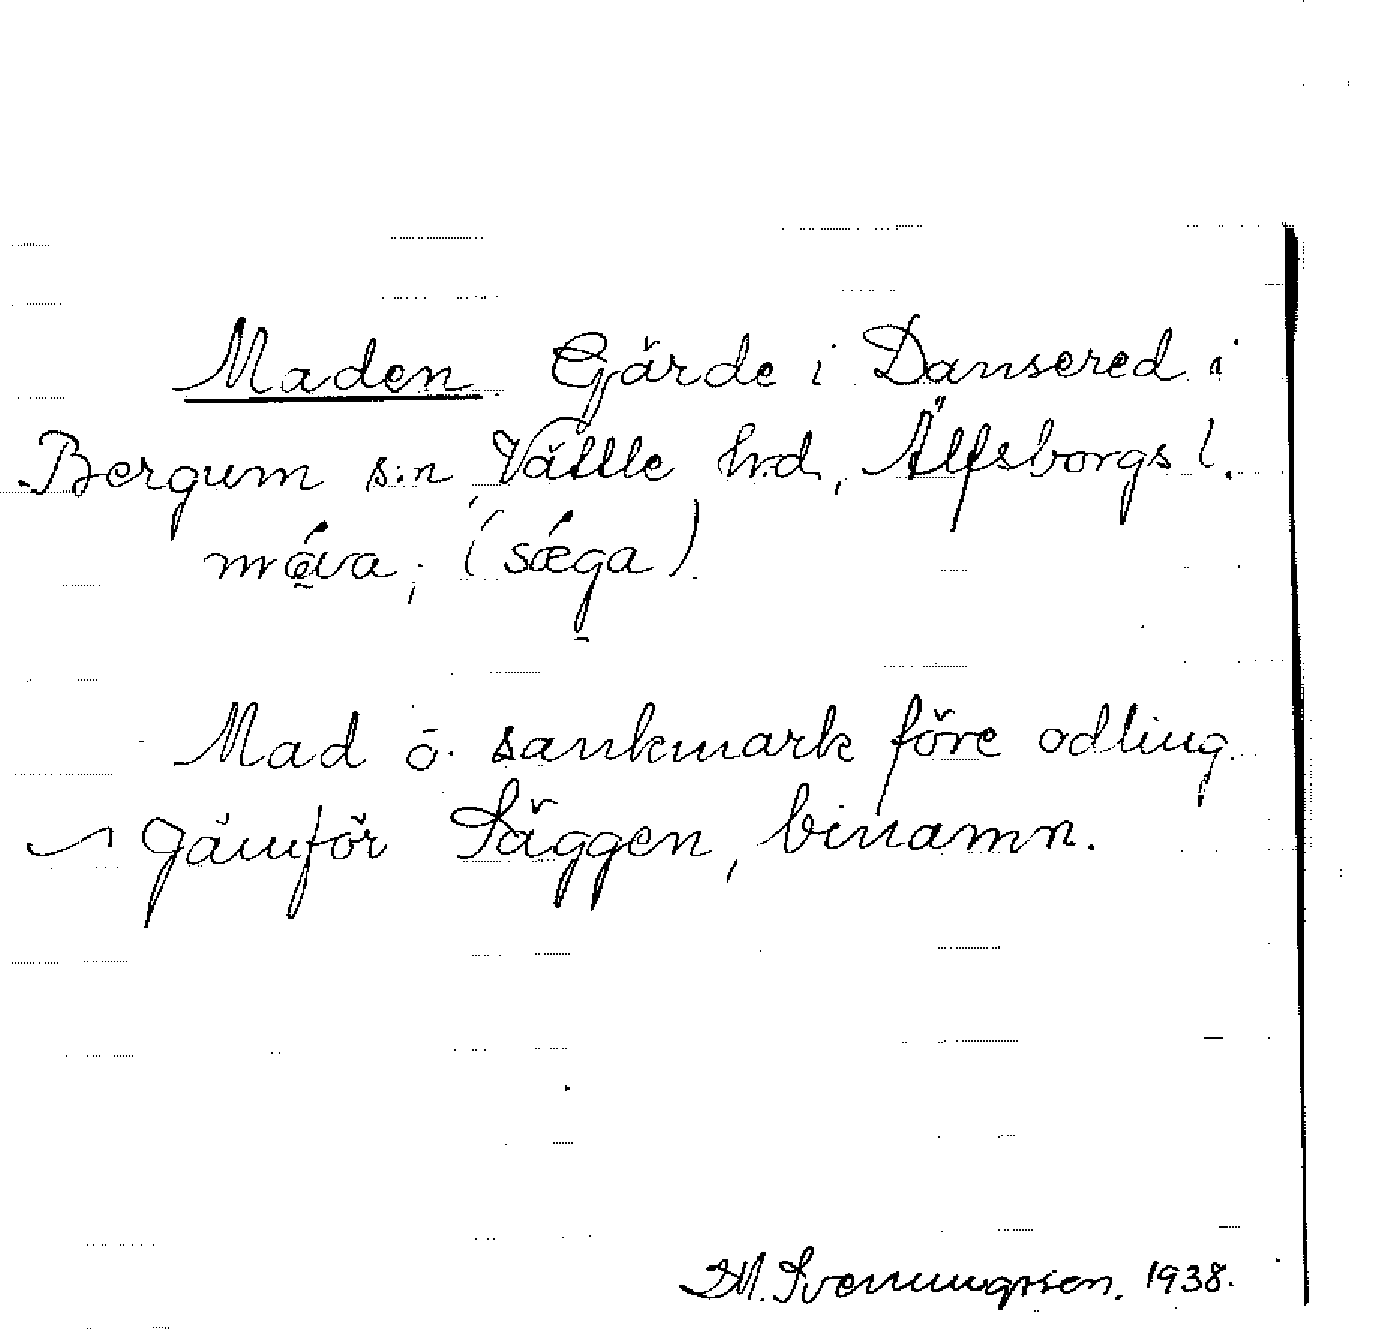 Maden Gärde i Dansered i
Bergum s:n, Vättle hrd, Älfsborgs l.
(sǽga)
Mad o. sankmark före odling.
Jämför Säggen, binamn.
Svenningsson. 1938.